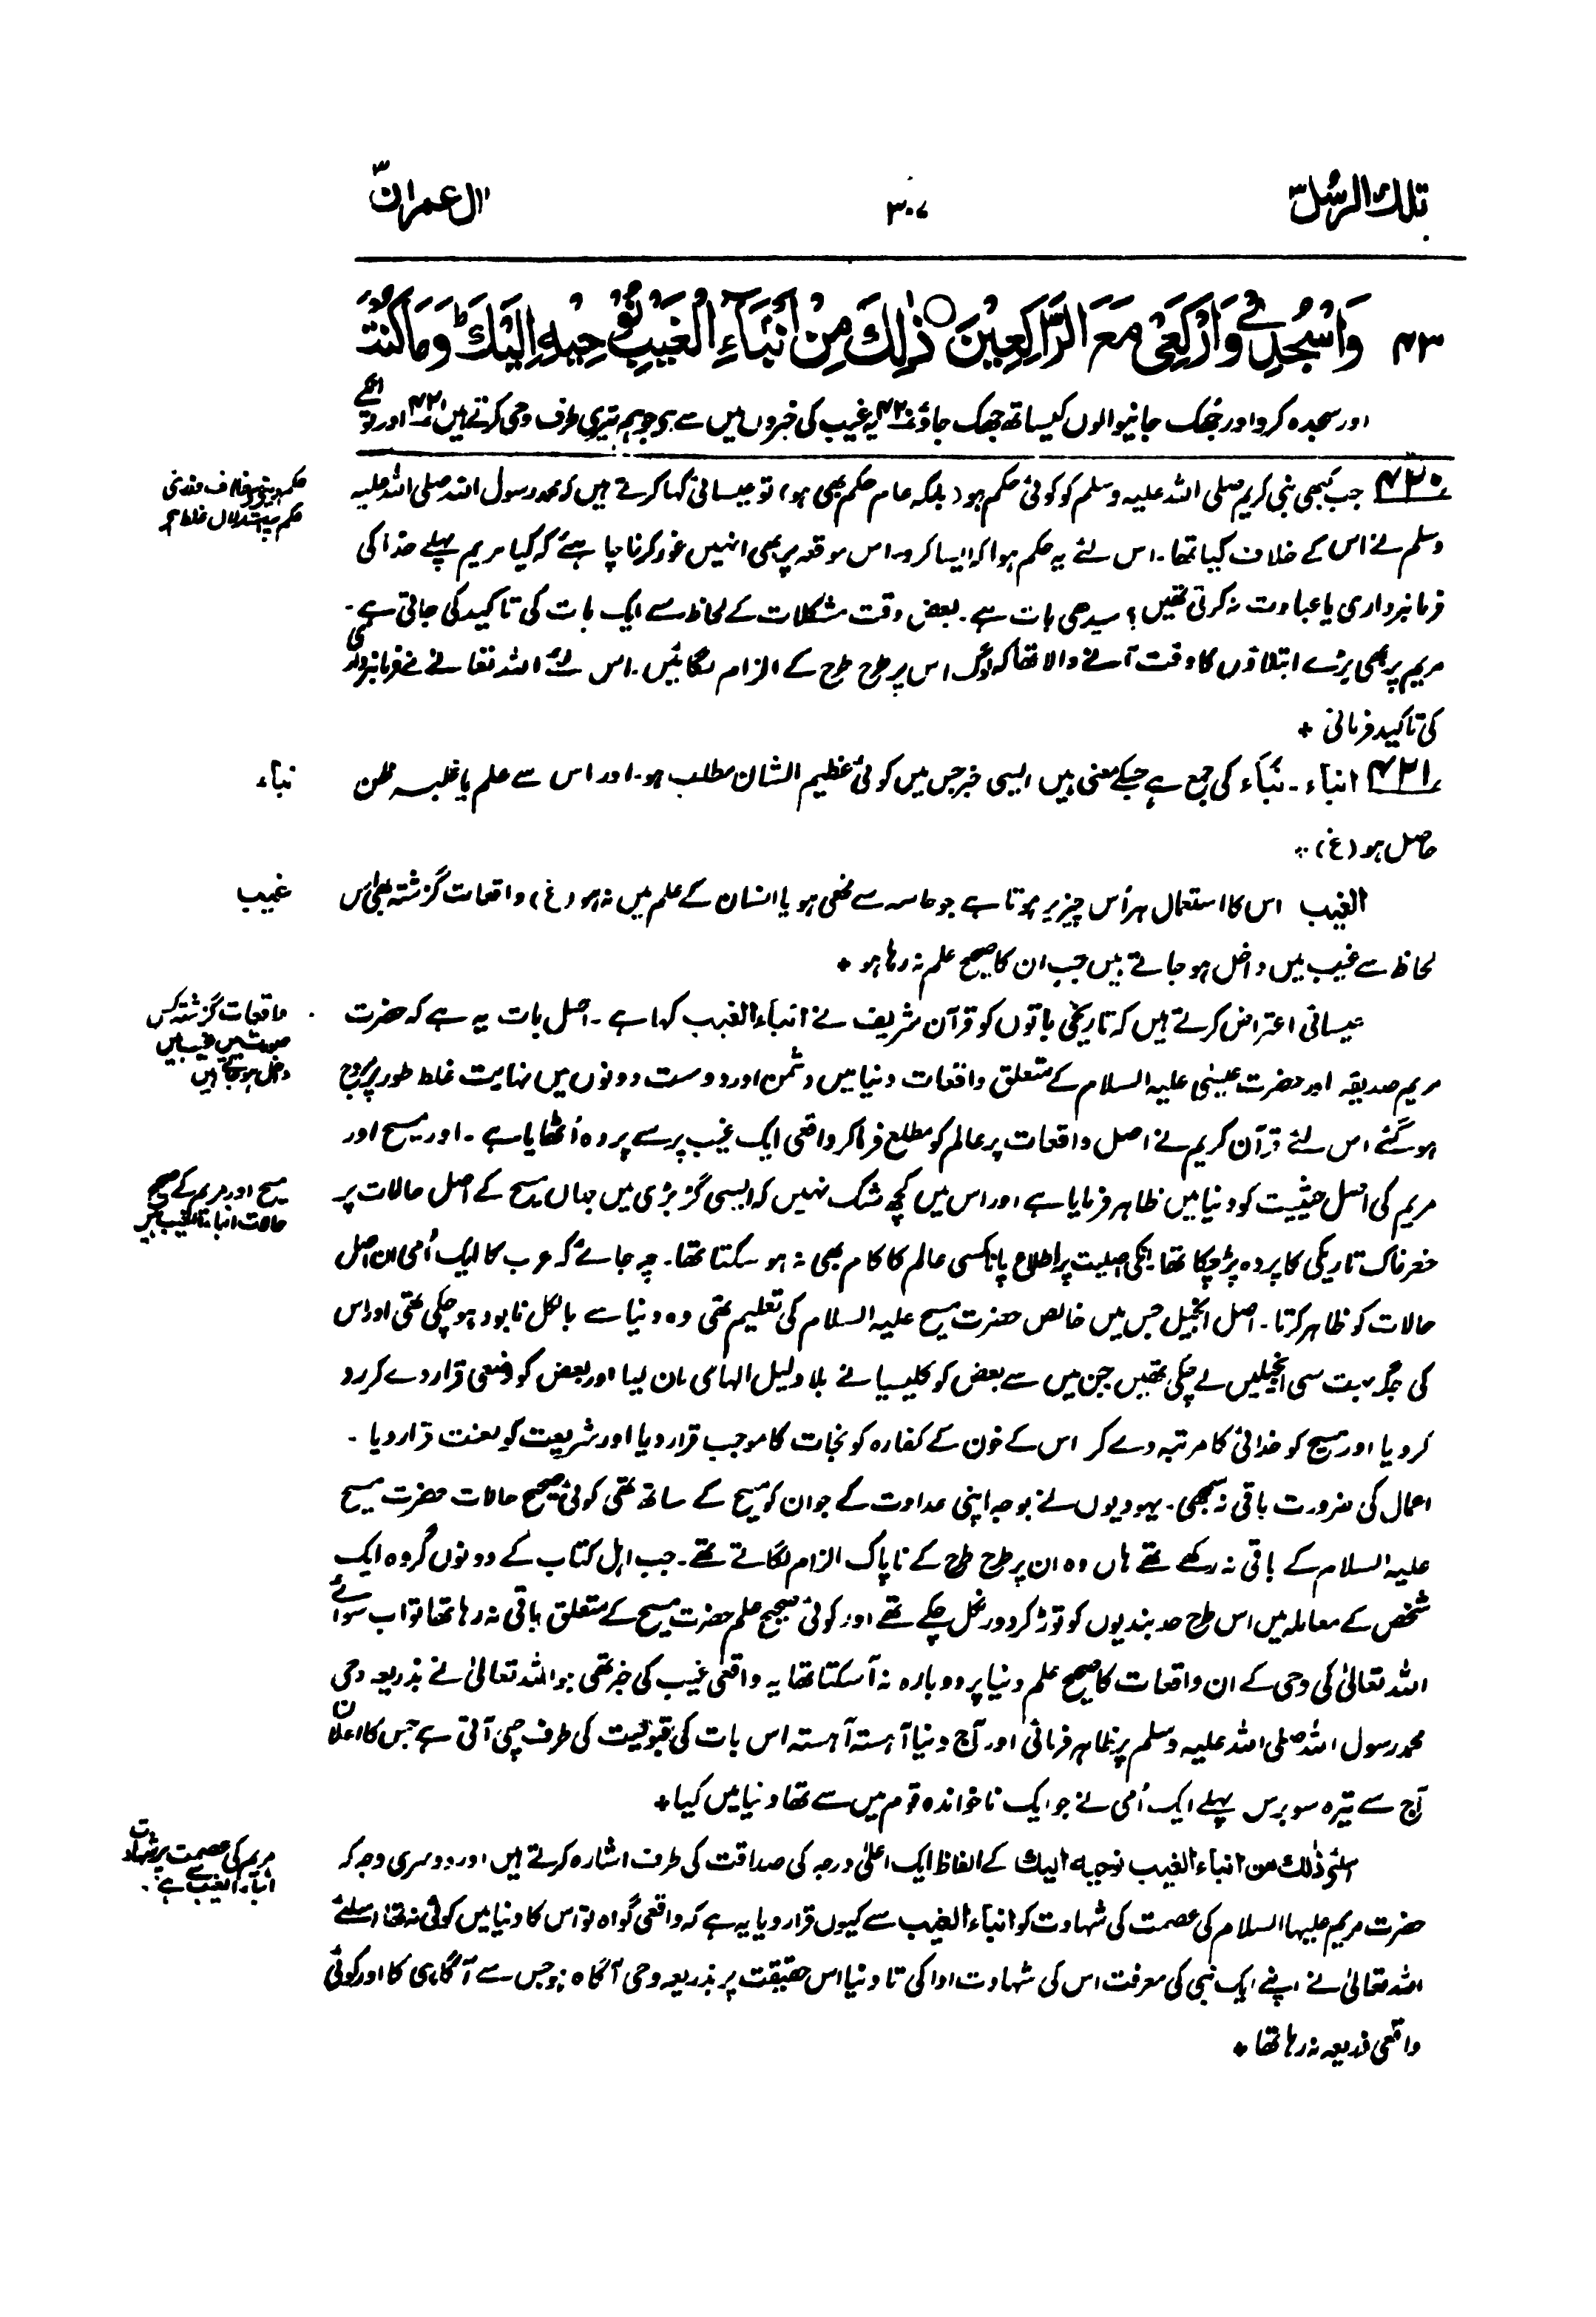 تلك الرسل ۳
۳۰۷
اٰل عمران ۳
۴۳ وَاسْجُدِيْ وَارْكَعِيْ مَعَ الرّٰكِعِيْنَ ○ ذٰلِكَ مِنْ اَنْۢبَآءِ الْغَيْبِ نُوْحِيْهِ اِلَيْكَ ؕ وَمَا كُنْتَ
اور سجدہ کر و اور جھک جانیوالوں کیساتھ جھک جاؤ ۴۲۰ یہ غیب کی خبروں میں سے ہی جو ہم تیری طرف وحی کرتے ہیں ۴۲۱ اور تو
۴۲۰ جب کبھی نبی کریم صلی اللہ علیہ وسلم کو کوئی حکم ہو (بلکہ عام حکم بھی ہو) تو عیسائی کہا کرتے ہیں کہ محمد رسول اللہ صلی اللہ علیہ
وسلم نے اس کے خلاف کیا تھا۔ اس لئے یہ حکم ہوا کہ ایسا کرو۔ اس موقعہ پر بھی انہیں غور کرنا چاہئے کہ کیا مریم پہلے خدا کی
فرمانبرداری یا عبادت نہ کرتی تھیں؟ سیدھی بات ہے۔ بعض وقت مشکلات کے لحاظ سے ایک بات کی تاکید کی جاتی ہے۔
مریم پر بھی بڑے ابتلاؤں کا وقت آنے والا تھا کہ لوگ اس پر طرح طرح کے الزام لگائیں۔ اس لئے اللہ تعالےٰ نے فرمانبرداری
کی تاکید فرمائی +
۴۲۱ انباء۔ نَبَاَء کی جمع ہے جسکے معنی ہیں ایسی خبر جس میں کوئی عظیم الشان مطلب ہو۔ اور اس سے علم یا غلبہ ظن
نباء
حاصل ہو (غ) +
الغیب اس کا استعمال ہر اُس چیز پر ہوتا ہے جو حاسہ سے مخفی ہو یا انسان کے علم میں نہ ہو (غ) واقعات گزشتہ بھی اس
غیب
لحاظ سے غیب میں داخل ہو جاتے ہیں جب ان کا صحیح علم نہ رہا ہو +
عیسائی اعتراض کرتے ہیں کہ تاریخی باتوں کو قرآن شریف نے انباء الغیب کہا ہے۔ اصل بات یہ ہے کہ حضرت
واقعات گزشتہ کس
صورت میں غیب میں
داخل ہو جاتے ہیں
مریم صدیقہ اور حضرت عیسٰی علیہ السلام کے متعلق واقعات دنیا میں دشمن اور دوست دونوں میں نہایت غلط طور پر مروج
ہو گئے اس لئے قرآن کریم نے اصل واقعات پر عالم کو مطلع فرما کر واقعی ایک غیب پر سے پردہ اُٹھایا ہے۔ اور مسیح اور
مریم کی اصل حیثیت کو دنیا میں ظاہر فرمایا ہے اور اس میں کچھ شک نہیں کہ ایسی گڑبڑی میں جہاں مسیح کے اصل حالات پر
مسیح اور مریم کے صحیح
حالات انباء الغیب ہیں
خطرناک تاریکی کا پردہ پڑ چکا تھا انکی اصلیت پر اطلاع پانا کسی عالم کا کام بھی نہ ہو سکتا تھا۔ چہ جائے کہ عرب کا ایک اُمی ان اصل
حالات کو ظاہر کرتا۔ اصل انجیل جس میں خالص حضرت مسیح علیہ السلام کی تعلیم تھی وہ دنیا سے بالکل نابود ہو چکی تھی اور اس
کی جگہ بہت سی انجیلیں لے چکی تھیں جن میں سے بعض کو کلیسیا نے بلا دلیل الہامی مان لیا اور بعض کو وضعی قرار دے کر رد
کر دیا اور مسیح کو خدائی کا مرتبہ دے کر اس کے خون کے کفارہ کو نجات کا موجب قرار دیا اور شریعت کو لعنت قرار دیا۔
اعمال کی ضرورت باقی نہ سمجھی۔ یہودیوں نے بوجہ اپنی عداوت کے جو ان کو مسیح کے ساتھ تھی کوئی صحیح حالات حضرت مسیح
علیہ السلام کے باقی نہ رکھے تھے ہاں وہ ان پر طرح طرح کے ناپاک الزام لگاتے تھے۔ جب اہل کتاب کے دونوں گروہ ایک
شخص کے معاملہ میں اس طرح حد بندیوں کو توڑ کر دور نکل چکے تھے اور کوئی صحیح علم حضرت مسیح کے متعلق باقی نہ رہا تھا تو اب سوائے
اللہ تعالیٰ کی وحی کے ان واقعات کا صحیح علم دنیا پر دوبارہ نہ آ سکتا تھا یہ واقعی غیب کی خبر تھی جو اللہ تعالیٰ نے بذریعہ وحی
محمد رسول اللہ صلی اللہ علیہ وسلم پر ظاہر فرمائی اور آج دنیا آہستہ آہستہ اس بات کی قبولیت کی طرف چلی آتی ہے جس کا اعلان
آج سے تیرہ سو برس پہلے ایک اُمی نے جو ایک ناخواندہ قوم میں سے تھا دنیا میں کیا +
اسلئی ذٰلك من انباء الغیب نوحیه الیك کے الفاظ ایک اعلیٰ درجہ کی صداقت کی طرف اشارہ کرتے ہیں اور دوسری وجہ کہ
مریم کی عصمت پر شہادت
انباء الغیب سے ہے۔
حضرت مریم علیہا السلام کی عصمت کی شہادت کو انباء الغیب سے کیوں قرار دیا یہ ہے کہ واقعی گواہ تو اس کا دنیا میں کوئی نہ تھا اسلئے
اللہ تعالیٰ نے اپنے ایک نبی کی معرفت اس کی شہادت ادا کی تا دنیا اس حقیقت پر بذریعہ وحی آگاہ ہو جس سے آگاہی کا اور کوئی
واقعی ذریعہ نہ رہا تھا +